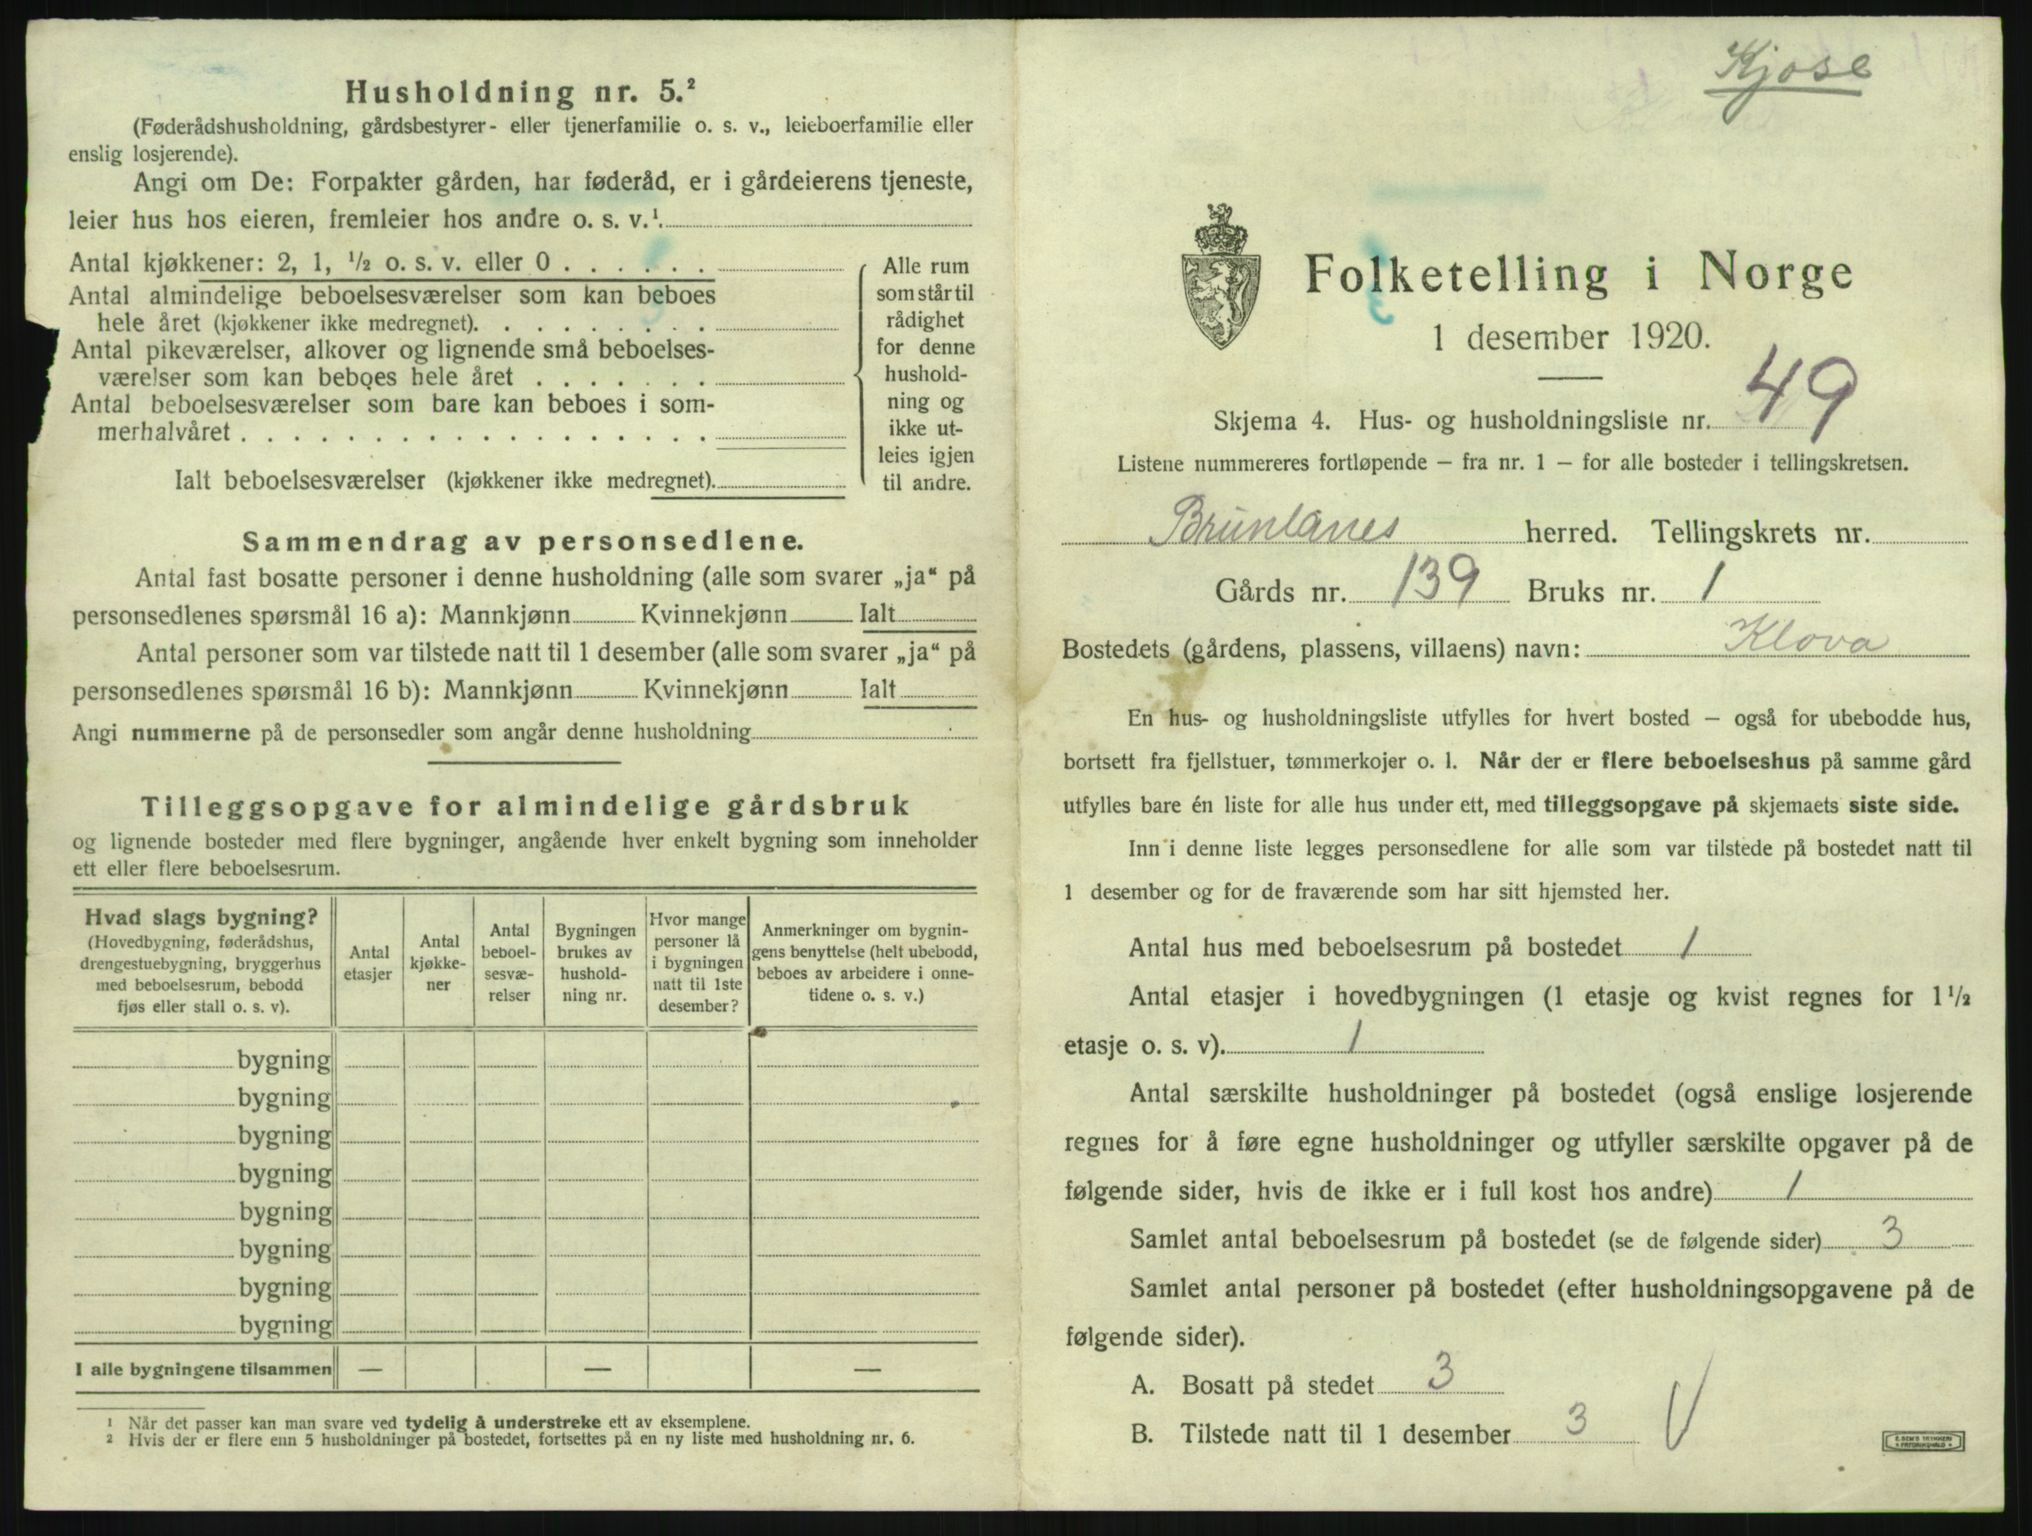 Husholdning nr. 5.²
(Føderådshusholdning, gårdsbestyrer- eller tjenerfamilie o. s. v., leieboerfamilie eller
enslig losjerende).
Angi om De: Forpakter gården, har føderåd, er i gårdeierens tjeneste,
leier hus hos eieren, fremleier hos andre o. s. v.¹.
Antal kjøkkener: 2, 1, ½ o. s. v. eller 0 . . . . . .
Antal almindelige beboelsesværelser som kan beboes
hele året (kjøkkener ikke medregnet). . . . . . . . .
Antal pikeværelser, alkover og lignende små beboelses-
værelser som kan beboes hele året . . . . . . .
Antal beboelsesværelser som bare kan beboes i som-
merhalvåret . . . . . . . . . . . . . . . . . .
Ialt beboelsesværelser (kjøkkener ikke medregnet).
Alle rum
som står til
rådighet
for denne
hushold-
ning og
ikke ut-
leies igjen
til andre.
Sammendrag av personsedlene.
Antal fast bosatte personer i denne husholdning (alle som svarer „ja“ på
personsedlenes spørsmål 16 a): Mannkjønn Kvinnekjønn Ialt
Antal personer som var tilstede natt til 1 desember (alle som svarer „ja“ på
personsedlenes spørsmål 16 b): Mannkjønn Kvinnekjønn Ialt
Angi nummerne på de personsedler som angår denne husholdning
Tilleggsopgave for almindelige gårdsbruk
og lignende bosteder med flere bygninger, angående hver enkelt bygning som inneholder
ett eller flere beboelsesrum.
Hvad slags bygning?
(Hovedbygning, føderådshus,
drengestuebygning, bryggerhus
med beboelsesrum, bebodd
fjøs eller stall o. s. v).
Antal
etasjer
Antal
kjøkke-
ner
Antal
beboel-
sesvæ-
relser
Bygningen
brukes av
hushold-
ning nr.
Hvor mange
personer lå
i bygningen
natt til 1ste
desember?
Anmerkninger om bygnin-
gens benyttelse (helt ubebodd,
beboes av arbeidere i onne-
tidene o. s. v.)
bygning
bygning
bygning
bygning
bygning
bygning
bygning
bygning
I alle bygningene tilsammen — — —
¹ Når det passer kan man svare ved tydelig å understreke ett av eksemplene.
² Hvis der er flere enn 5 husholdninger på bostedet, fortsettes på en ny liste med husholdning nr. 6.
Kjose
Folketelling i Norge
1 desember 1920.
Skjema 4. Hus- og husholdningsliste nr. 49
Listene nummereres fortløpende — fra nr. 1 — for alle bosteder i tellingskretsen.
Brunlanes herred. Tellingskrets nr.
Gårds nr. 139 Bruks nr. 1
Bostedets (gårdens, plassens, villaens) navn: Klova
En hus- og husholdningsliste utfylles for hvert bosted — også for ubebodde hus,
bortsett fra fjellstuer, tømmerkojer o. l. Når der er flere beboelseshus på samme gård
utfylles bare én liste for alle hus under ett, med tilleggsopgave på skjemaets siste side.
Inn i denne liste legges personsedlene for alle som var tilstede på bostedet natt til
1 desember og for de fraværende som har sitt hjemsted her.
Antal hus med beboelsesrum på bostedet 1
Antal etasjer i hovedbygningen (1 etasje og kvist regnes for 1½
etasje o. s. v). 1
Antal særskilte husholdninger på bostedet (også enslige losjerende
regnes for å føre egne husholdninger og utfyller særskilte opgaver på de
følgende sider, hvis de ikke er i full kost hos andre) 1
Samlet antal beboelsesrum på bostedet (se de følgende sider) 3
Samlet antal personer på bostedet (efter husholdningsopgavene på de
følgende sider).
A. Bosatt på stedet 3
B. Tilstede natt til 1 desember 3